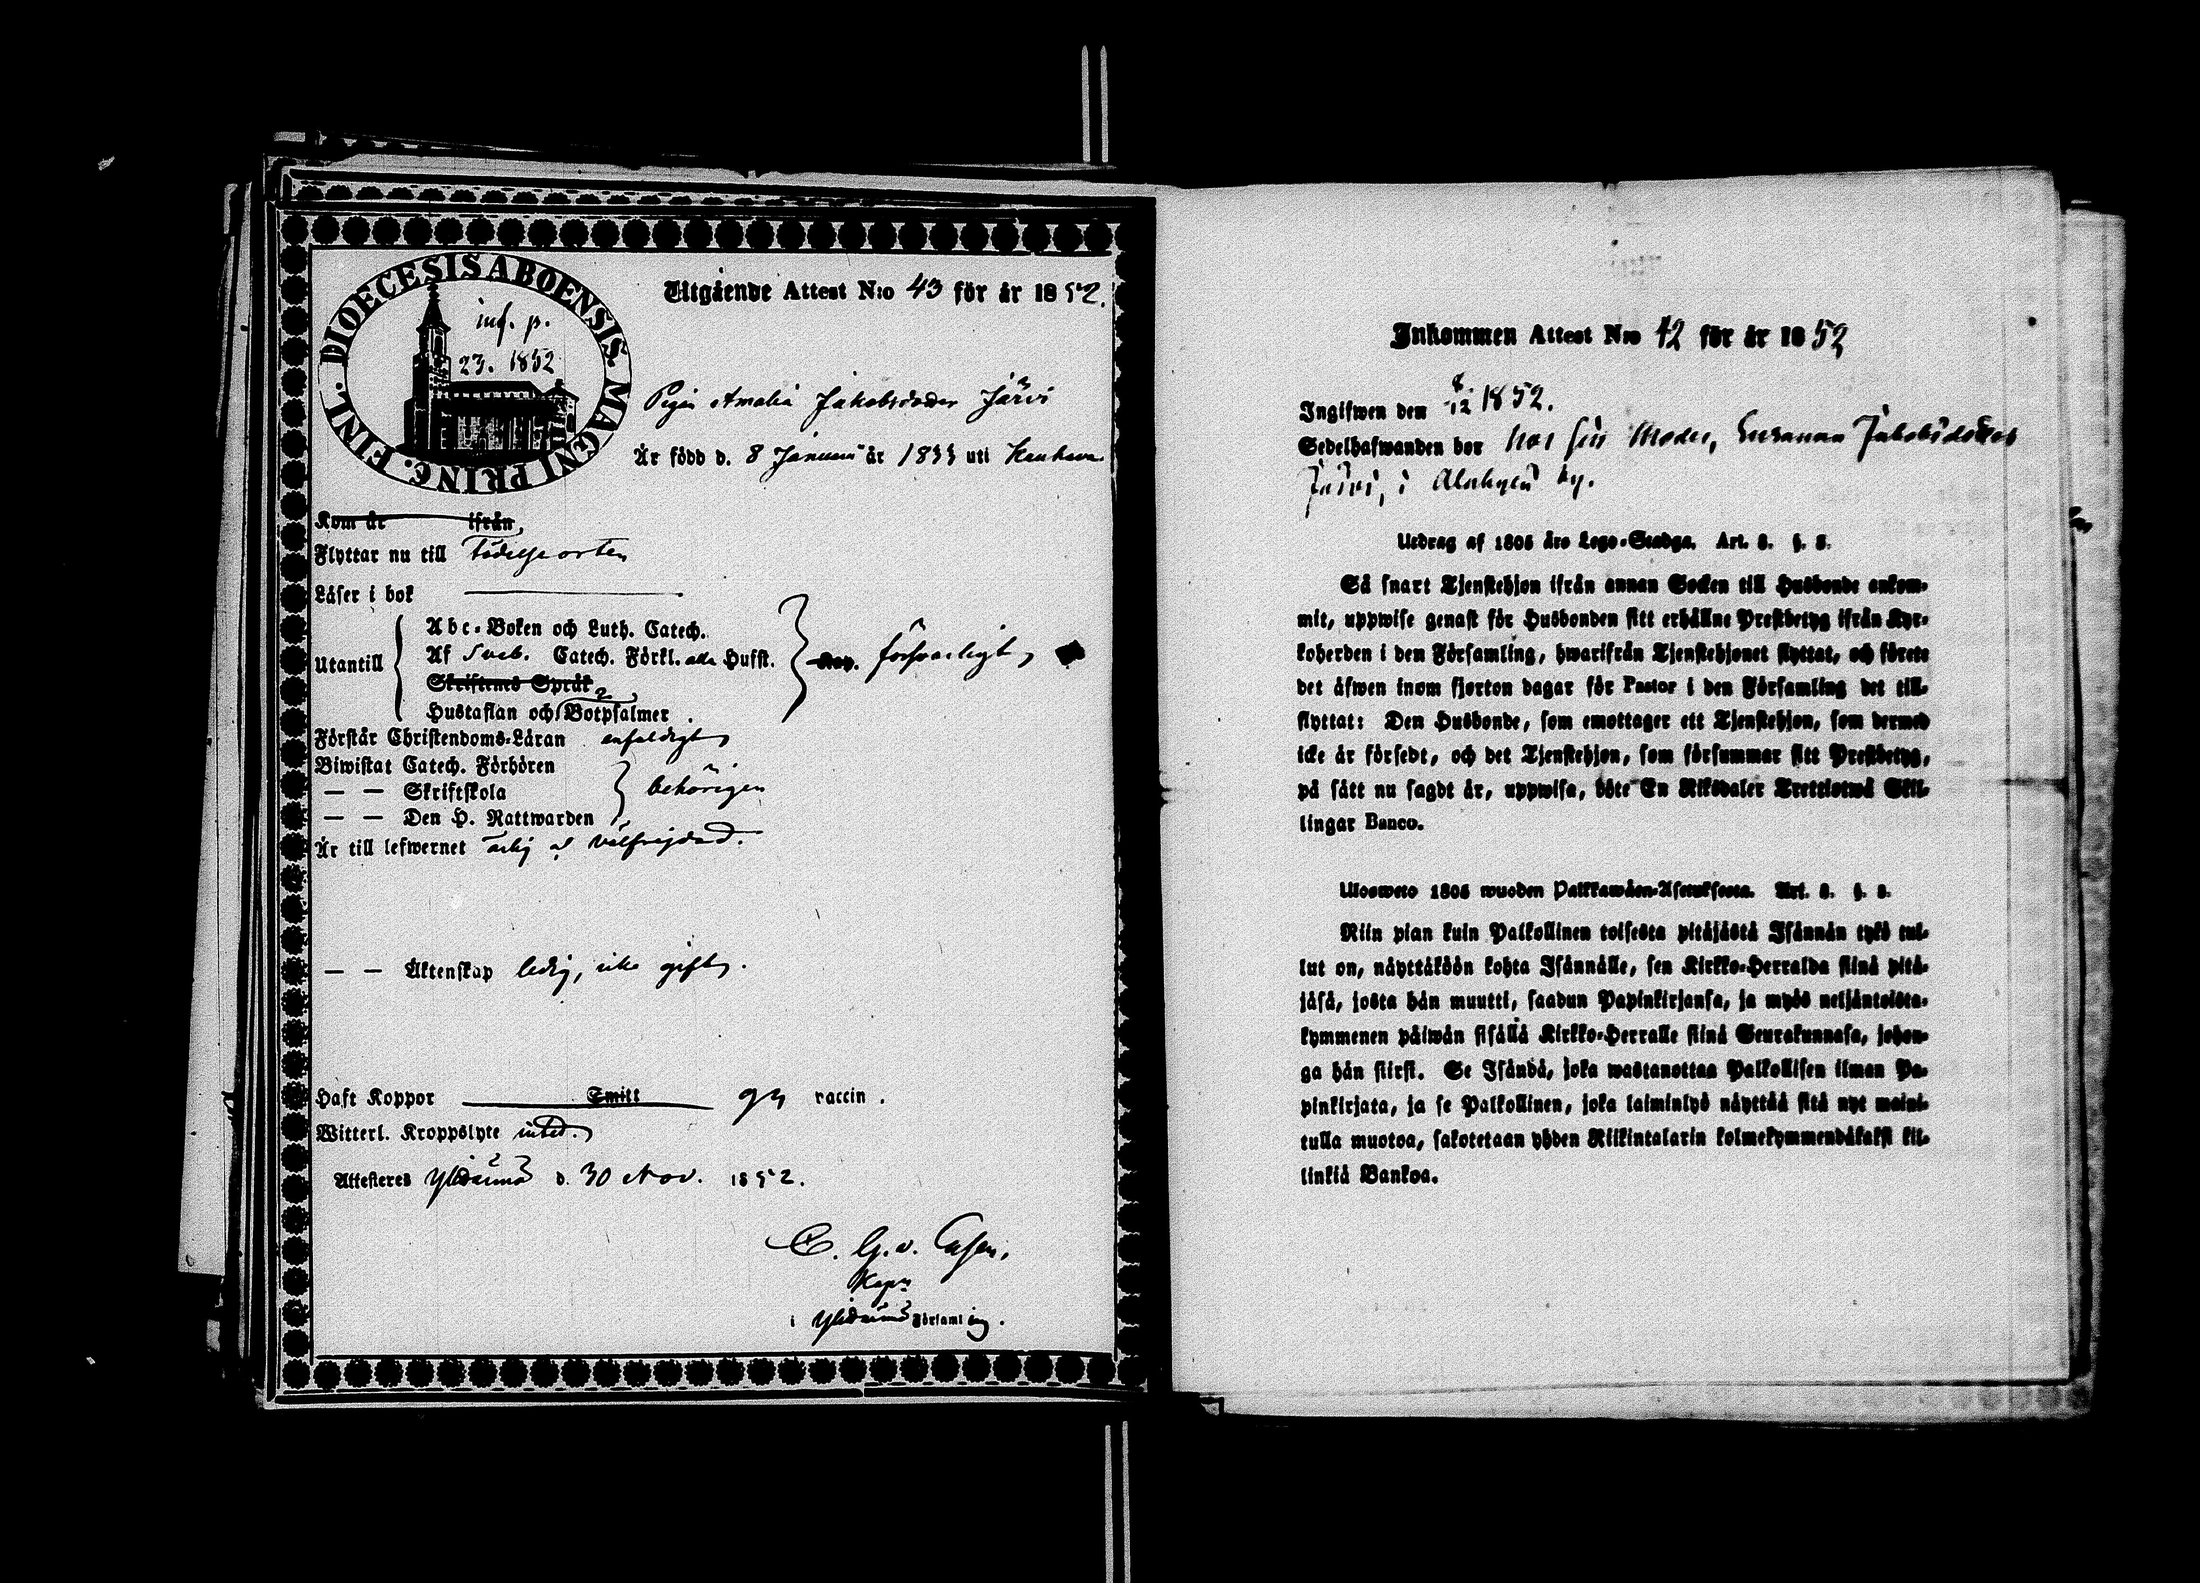 DIOECESIS ABOENSIS. MAGNI PRINC. FINL.
inf. p.
23. 1852
Utgående Attest N:o 43 för år 1852.
Pigan Amalia Jakobsdotter Järvi
Är född d. 8 Januari år 1833 uti Kauhava
Kom år ifrån
Flyttar nu till födelseorten
Läser i bok
Utantill
Abc-Boken och Luth. Catech.
Af Sveb. Catech. Förkl. alla Hufst. försvarligt
Skriftenes Språk
Hustaflan och Botpsalmer.
Förstår Christendoms-Läran enfaldigt
Biwistat Catech. Förhören
— — Skriftskola behörigen
— — Den H. Nattwarden
Är till lefwernet ärlig och välfrejdad.
— — Äktenskap ledig, icke gift.
Haft Koppor Smitt gm vaccin.
Witterl. Kroppslyte intet.
Attesteras Ylistaro d. 30 Nov. 1852.
C. G. v. Essen,
Kapn
i Ylistaro Församling.
Inkommen Attest N:o 42 för år 1852
Ingifwen den 8/12 1852.
Sedelhafwanden bor hos sin Moder, Susanna Jakobsdotter
Järvi, i Alakylä by.
Utdrag af 1805 års Lego-Stadga. Art. 8. §. 8.
Så snart Tjenstehjon ifrån annan Socken till Husbonde ankom-
mit, uppwise genast för Husbonden sitt erhållne Prestbetyg ifrån Kyr-
koherden i den Församling, hwarifrån Tjenstehjonet flyttat, och förete
det äfwen inom fjorton dagar för Pastor i den Församling det till-
flyttat: Den Husbonde, som emottager ett Tjenstehjon, som dermed
icke är försedt, och det Tjenstehjon, som försummar sitt Prestbetyg,
på sätt nu sagdt är, uppwisa, böte En Riksdaler Trettiotwå Skil-
lingar Banco.
Ulosweto 1805 wuoden Palkkawäen-Asetuksesta. Art. 8. §. 8.
Niin pian kuin Palkollinen toisesta pitäjästä Isännän tykö tul-
lut on, näyttäköön kohta Isännälle, sen Kirkko-Herralda siinä pitä-
jäsä, josta hän muutti, saadun Papinkirjansa, ja myös neljäntoista-
kymmenen päiwän sisällä Kirkko-Herralle siinä Seurakunnasa, johon-
ga hän siirsi. Se Isändä, joka wastanottaa Palkollisen ilman Pa-
pinkirjata, ja se Palkollinen, joka laiminlyö näyttää sitä nyt maini-
tulla muotoa, sakotetaan yhden Riikintalarin kolmekymmendäkaksi kil-
linkiä Bankoa.